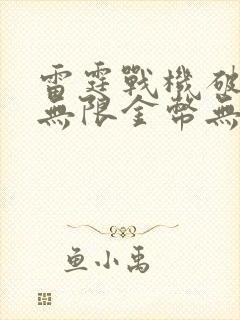 雷霆戰機破
無限金幣無
魚小禹